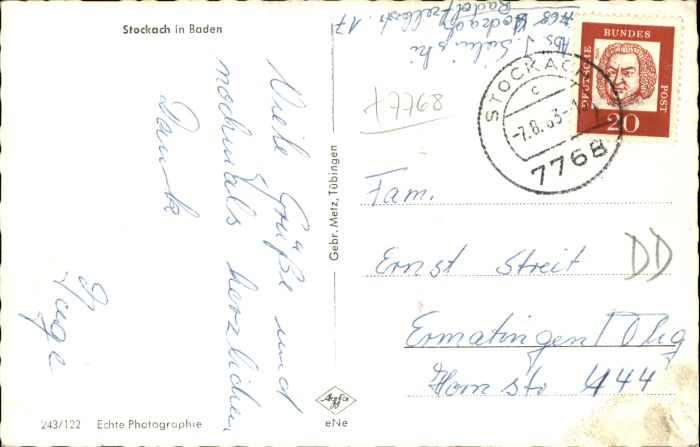 Stockach in Baden
Viele Grüße und
nochmals herzlichen
Dank
243/122 Echte Photographie
Gebr. Metz, Tübingen
Agfa
eNe
Abs. J.
7768 Stockach
Radolfzellerstr. 17
+7768
STOCKACH
c
-7.8.63-1
7768
DEUTSCHE BUNDES POST
20
Fam.
Ernst Streit
DD
Ermatingen / Thg
Hornstr 444